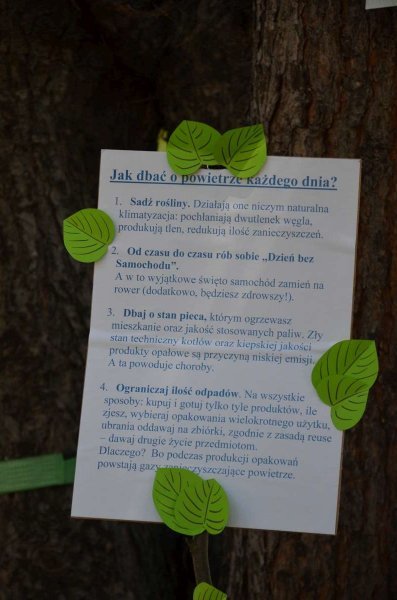 Jak dbać o powietrze każdego dnia?
1. Sadź rośliny. Działają one niczym naturalna
klimatyzacja: pochłaniają dwutlenek węgla,
produkują tlen, redukują ilość zanieczyszczeń.
2. Od czasu do czasu rób sobie „Dzień bez
Samochodu”.
A w to wyjątkowe święto samochód zamień na
rower (dodatkowo, będziesz zdrowszy!).
3. Dbaj o stan pieca, którym ogrzewasz
mieszkanie oraz jakość stosowanych paliw. Zły
stan techniczny kotłów oraz kiepskiej jakości
produkty opałowe są przyczyną niskiej emisji.
A ta powoduje choroby.
4. Ograniczaj ilość odpadów. Na wszystkie
sposoby: kupuj i gotuj tylko tyle produktów, ile
zjesz, wybieraj opakowania wielokrotnego użytku,
ubrania oddawaj na zbiórki, zgodnie z zasadą reuse
– dawaj drugie życie przedmiotom.
Dlaczego? Bo podczas produkcji opakowań
powstają gazy zanieczyszczające powietrze.